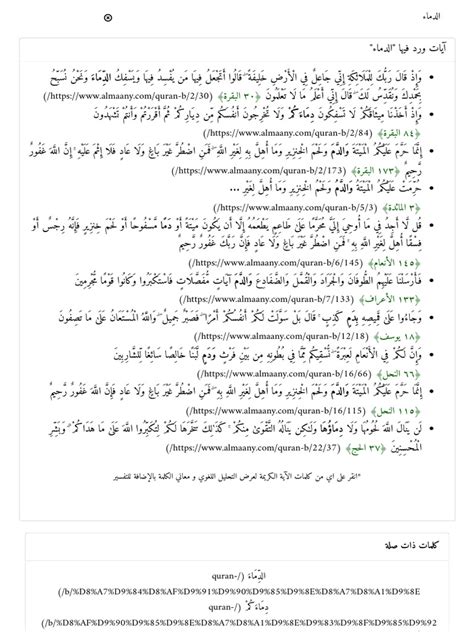 الدماء
آيات ورد فيها "الدماء"
وَإِذْ قَالَ رَبُّكَ لِلْمَلَائِكَةِ إِنِّي جَاعِلٌ فِي الْأَرْضِ خَلِيفَةً ۖ قَالُوا أَتَجْعَلُ فِيهَا مَن يُفْسِدُ فِيهَا وَيَسْفِكُ الدِّمَاءَ وَنَحْنُ نُسَبِّحُ
بِحَمْدِكَ وَنُقَدِّسُ لَكَ ۖ قَالَ إِنِّي أَعْلَمُ مَا لَا تَعْلَمُونَ ﴿٣٠ البقرة﴾ (https://www.almaany.com/quran-b/2/30/)
وَإِذْ أَخَذْنَا مِيثَاقَكُمْ لَا تَسْفِكُونَ دِمَاءَكُمْ وَلَا تُخْرِجُونَ أَنفُسَكُم مِّن دِيَارِكُمْ ثُمَّ أَقْرَرْتُمْ وَأَنتُمْ تَشْهَدُونَ
﴿٨٤ البقرة﴾ (https://www.almaany.com/quran-b/2/84/)
إِنَّمَا حَرَّمَ عَلَيْكُمُ الْمَيْتَةَ وَالدَّمَ وَلَحْمَ الْخِنزِيرِ وَمَا أُهِلَّ بِهِ لِغَيْرِ اللَّهِ ۖ فَمَنِ اضْطُرَّ غَيْرَ بَاغٍ وَلَا عَادٍ فَلَا إِثْمَ عَلَيْهِ ۚ إِنَّ اللَّهَ غَفُورٌ
رَّحِيمٌ ﴿١٧٣ البقرة﴾ (https://www.almaany.com/quran-b/2/173/)
حُرِّمَتْ عَلَيْكُمُ الْمَيْتَةُ وَالدَّمُ وَلَحْمُ الْخِنزِيرِ وَمَا أُهِلَّ لِغَيْرِ ...
﴿٣ المائدة﴾ (https://www.almaany.com/quran-b/5/3/)
قُل لَّا أَجِدُ فِي مَا أُوحِيَ إِلَيَّ مُحَرَّمًا عَلَىٰ طَاعِمٍ يَطْعَمُهُ إِلَّا أَن يَكُونَ مَيْتَةً أَوْ دَمًا مَّسْفُوحًا أَوْ لَحْمَ خِنزِيرٍ فَإِنَّهُ رِجْسٌ أَوْ
فِسْقًا أُهِلَّ لِغَيْرِ اللَّهِ بِهِ ۚ فَمَنِ اضْطُرَّ غَيْرَ بَاغٍ وَلَا عَادٍ فَإِنَّ رَبَّكَ غَفُورٌ رَّحِيمٌ
﴿١٤٥ الأنعام﴾ (https://www.almaany.com/quran-b/6/145/)
فَأَرْسَلْنَا عَلَيْهِمُ الطُّوفَانَ وَالْجَرَادَ وَالْقُمَّلَ وَالضَّفَادِعَ وَالدَّمَ آيَاتٍ مُّفَصَّلَاتٍ فَاسْتَكْبَرُوا وَكَانُوا قَوْمًا مُّجْرِمِينَ
﴿١٣٣ الأعراف﴾ (https://www.almaany.com/quran-b/7/133/)
وَجَاءُوا عَلَىٰ قَمِيصِهِ بِدَمٍ كَذِبٍ ۚ قَالَ بَلْ سَوَّلَتْ لَكُمْ أَنفُسُكُمْ أَمْرًا ۖ فَصَبْرٌ جَمِيلٌ ۖ وَاللَّهُ الْمُسْتَعَانُ عَلَىٰ مَا تَصِفُونَ
﴿١٨ يوسف﴾ (https://www.almaany.com/quran-b/12/18/)
وَإِنَّ لَكُمْ فِي الْأَنْعَامِ لَعِبْرَةً ۖ نُّسْقِيكُم مِّمَّا فِي بُطُونِهِ مِن بَيْنِ فَرْثٍ وَدَمٍ لَّبَنًا خَالِصًا سَائِغًا لِّلشَّارِبِينَ
﴿٦٦ النحل﴾ (https://www.almaany.com/quran-b/16/66/)
إِنَّمَا حَرَّمَ عَلَيْكُمُ الْمَيْتَةَ وَالدَّمَ وَلَحْمَ الْخِنزِيرِ وَمَا أُهِلَّ لِغَيْرِ اللَّهِ بِهِ ۖ فَمَنِ اضْطُرَّ غَيْرَ بَاغٍ وَلَا عَادٍ فَإِنَّ اللَّهَ غَفُورٌ رَّحِيمٌ
﴿١١٥ النحل﴾ (https://www.almaany.com/quran-b/16/115/)
لَن يَنَالَ اللَّهَ لُحُومُهَا وَلَا دِمَاؤُهَا وَلَٰكِن يَنَالُهُ التَّقْوَىٰ مِنكُمْ ۚ كَذَٰلِكَ سَخَّرَهَا لَكُمْ لِتُكَبِّرُوا اللَّهَ عَلَىٰ مَا هَدَاكُمْ ۗ وَبَشِّرِ
الْمُحْسِنِينَ ﴿٣٧ الحج﴾ (https://www.almaany.com/quran-b/22/37/)
*انقر على اي من كلمات الآية الكريمة لعرض التحليل اللغوي و معاني الكلمة بالإضافة للتفسير
كلمات ذات صلة
الدِّمَاءَ (/quran-
b/%D8%A7%D9%84%D8%AF%D9%91%D9%90%D9%85%D9%8E%D8%A7%D8%A1%D9%8E/)
دِمَاءَكُمْ (/quran-
b/%D8%AF%D9%90%D9%85%D9%8E%D8%A7%D8%A1%D9%8E%D9%83%D9%8F%D9%85%D9%92/)